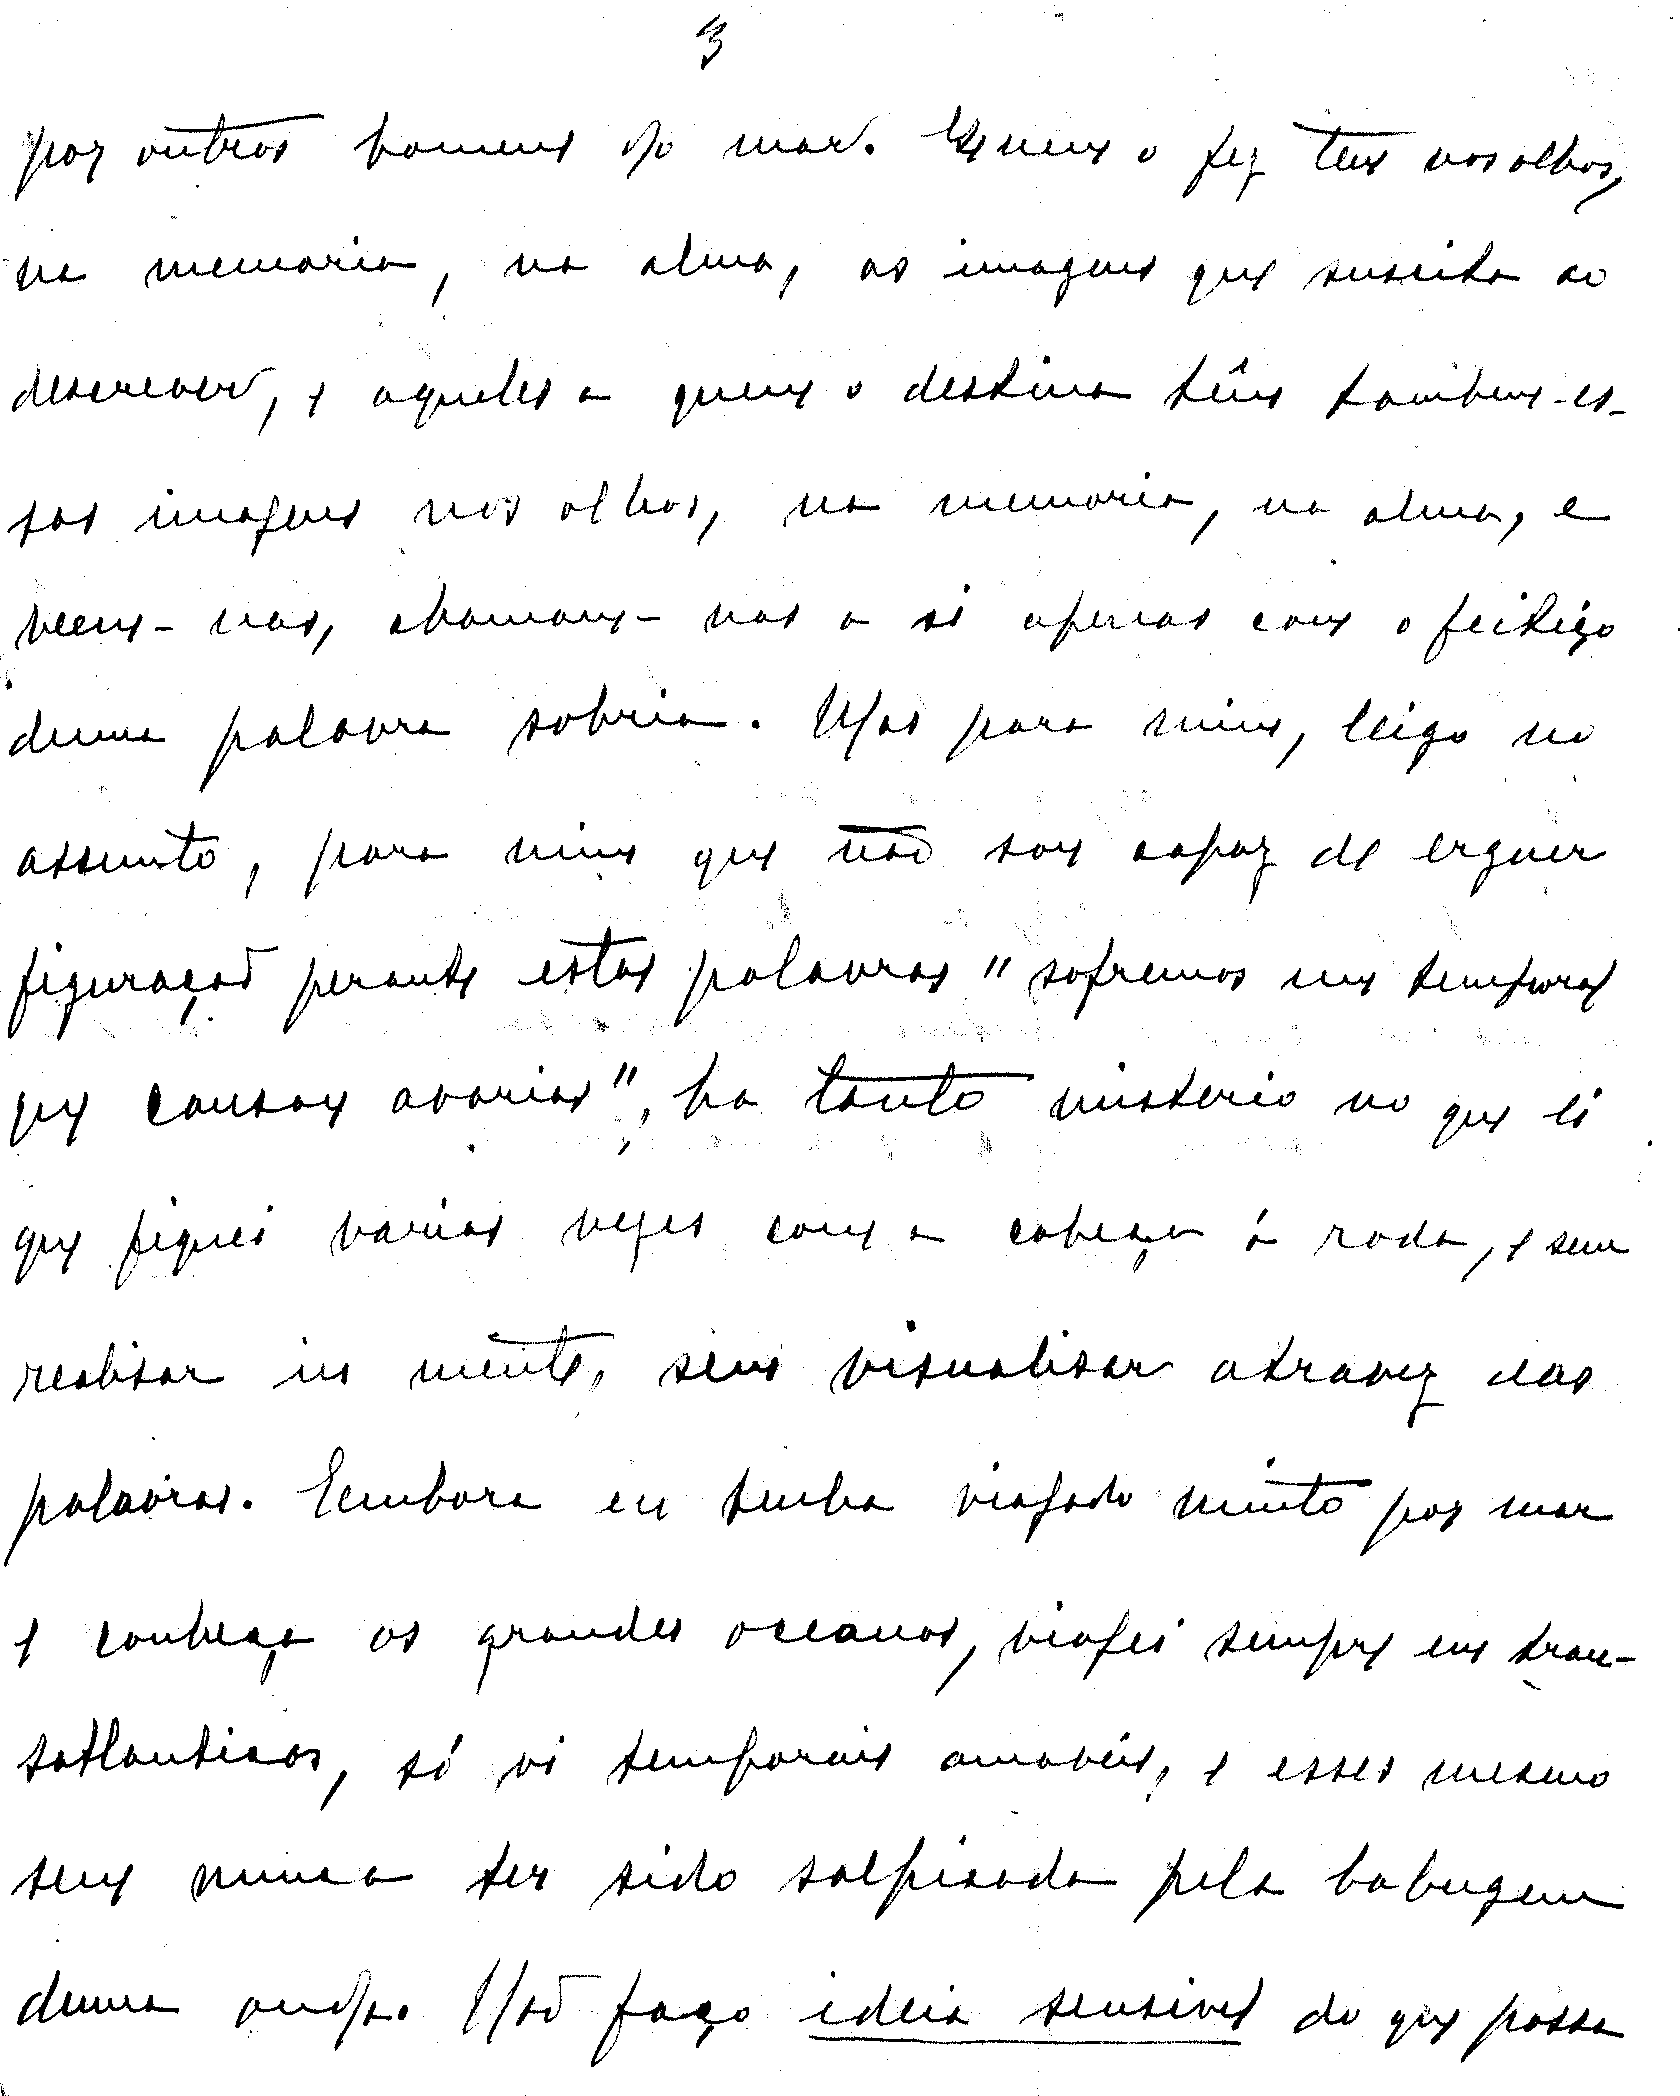 3
por outros homens do mar. Quem o fez tem nos olhos,
na memoria, na alma, as imagens que suscita ao
descrever, e aqueles a quem o destina têm tambem es-
sas imagens nos olhos, na memoria, na alma, e
veem-nas, chamam-nas a si apenas com o feitiço
duma palavra sobria. Mas para mim, leiga no
assunto, para mim que não sou capaz de erguer
figuração perante estas palavras "sofremos um temporal
que causou avarias", ha tanto misterio no que li
que fiquei varias vezes com a cabeça á roda, e sem
realisar in mente, sem visualisar atravez das
palavras. Embora eu tenha viajado muito por mar
e conheça os grandes oceanos, viajei sempre em tran-
satlanticos, só vi temporais amaveis, e esses mesmo
sem nunca ter sido salpicada pela babugem
duma onda. Não faço ideia sensivel do que possa